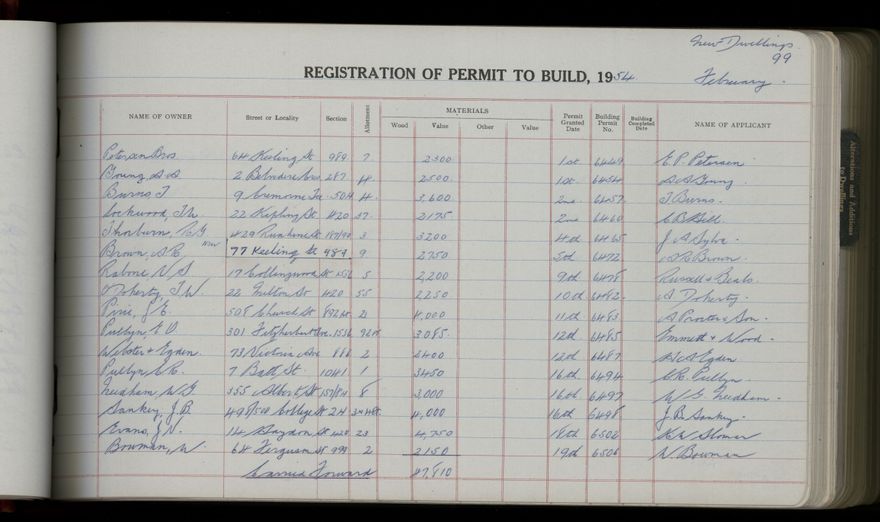 New Dwellings.
99
REGISTRATION OF PERMIT TO BUILD, 1954.
February.
NAME OF OWNER Street or Locality Section Allotment MATERIALS Wood Value Other Value Permit Granted Date Building Permit No. Building Completed Date NAME OF APPLICANT
Petersen Bros 64 Keeling St 989 7 2300 1st 6449 E. P. Petersen
Young 2 Belvedere Cres 287 4 2500 1st 6454 Young
Burns T 9 Cremorne Tce 504 4 3,600 2nd 6457 T Burns.
Lockwood, 22 Kipling St 420 37 2175 2nd 6460
Thorburn, 429 3 3200 4th 6465 J A Sylva.
Brown, New 77 Keeling St 989 9 2750 5th 6472 Brown.
Rabone 17 Collingwood St 5 2,200 9th 6478 Russell & Beals.
O'Doherty, J.W. 22 Milton St 420 55 2250 10th 6482. Doherty.
Pirie, J. E. 508 Church St 21 4,000 11th 6483 A Procter & Son.
Pullyn, 301 Fitzherbert Ave. 3,085. 12th 6485 Emmett & Wood.
Webster & Egden. 73 Victoria Ave 886 2 2400 12th 6487 Egden
Pullyn 7 Batt St. 1041 1 3450 16th 6494 Pullyn.
Needham, W G 355 Albert St 8 3,000 16th 6497 W. G. Needham.
Sankey, J. B. College St 4,000 16th 6498 J. B. Sankey.
Evans, J. V. 14 Haydon St 428 23 4,750 18th 6502
Bowman, W. 64 Ferguson St 998 2 2150 19th 6506 W. Bowman
Carried Forward 47,810
Alterations and Additions to Dwellings